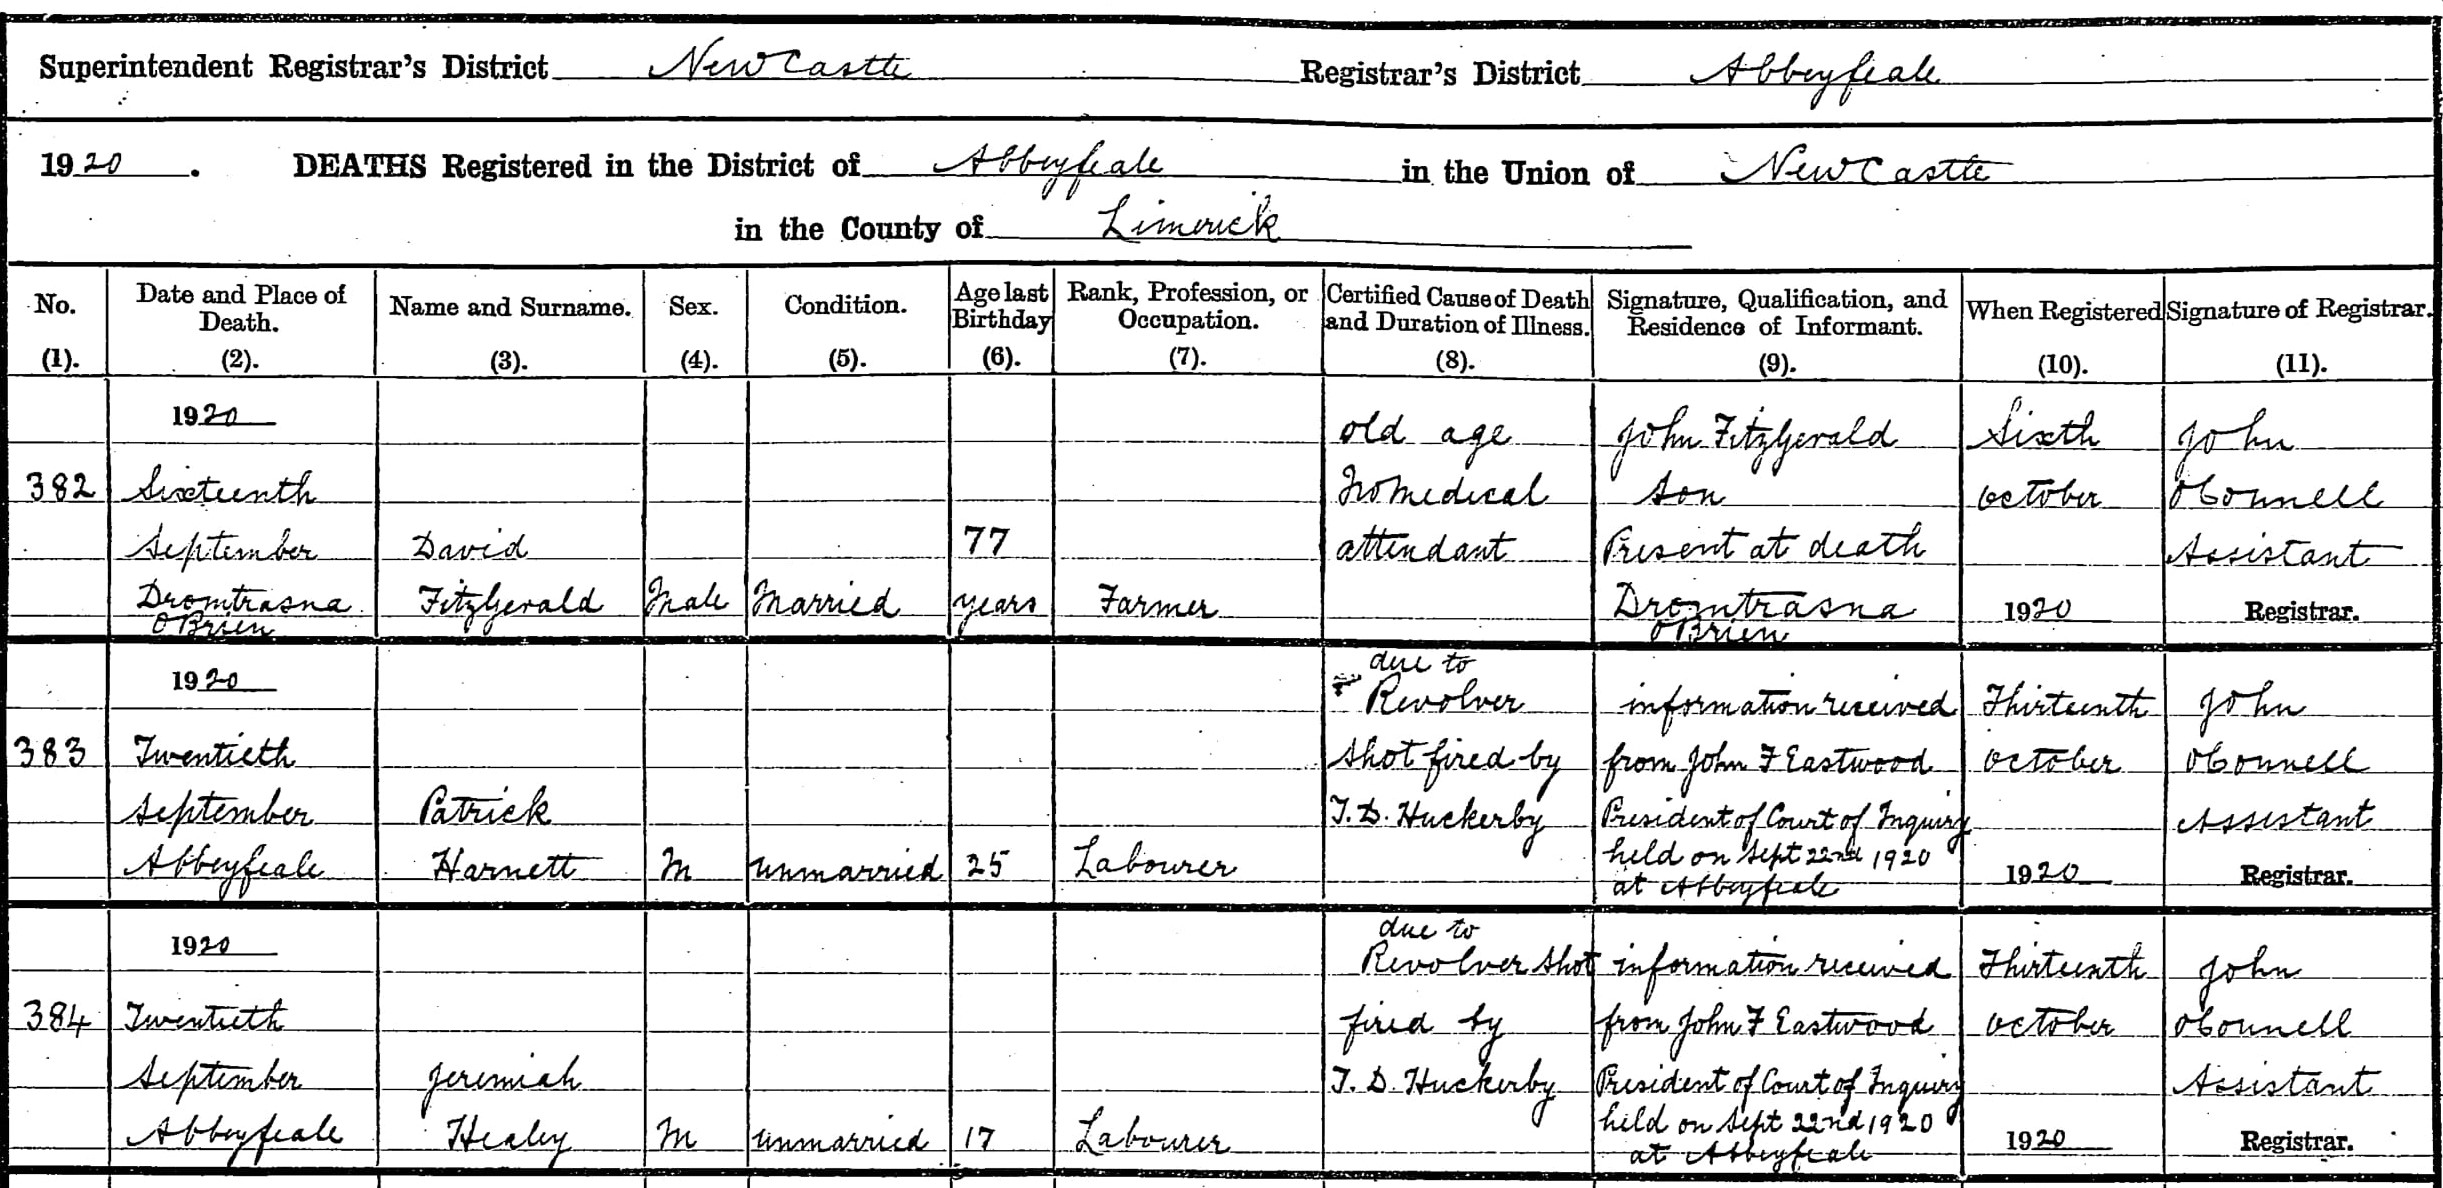 Superintendent Registrar's District NewCastle Registrar's District Abbeyfeale
1920. DEATHS Registered in the District of Abbeyfeale in the Union of NewCastle
in the County of Limerick
No. (1). Date and Place of Death. (2). Name and Surname. (3). Sex. (4). Condition. (5). Age last Birthday (6). Rank, Profession, or Occupation. (7). Certified Cause of Death and Duration of Illness. (8). Signature, Qualification, and Residence of Informant. (9). When Registered (10). Signature of Registrar. (11).
1920 old age John FitzGerald Sixth John
382 Sixteenth No medical Son October OConnell
September David 77 attendant Present at death Assistant
Dromtrasna FitzGerald Male Married years Farmer Dromtrasna 1920 Registrar.
OBrien OBrien
due to
1920 Revolver information received Thirteenth John
383 Twentieth shot fired by from John F Eastwood October OConnell
September Patrick T. D. Huckerby President of Court of Inquiry Assistant
Abbeyfeale Harnett M unmarried 25 Labourer held on Sept 22nd 1920 1920 Registrar.
at Abbeyfeale
due to
1920 Revolver shot information received Thirteenth John
384 Twentieth fired by from John F Eastwood October OConnell
September Jeremiah T. D. Huckerby President of Court of Inquiry Assistant
Abbeyfeale Healey M unmarried 17 Labourer held on Sept 22nd 1920 1920 Registrar.
at Abbeyfeale